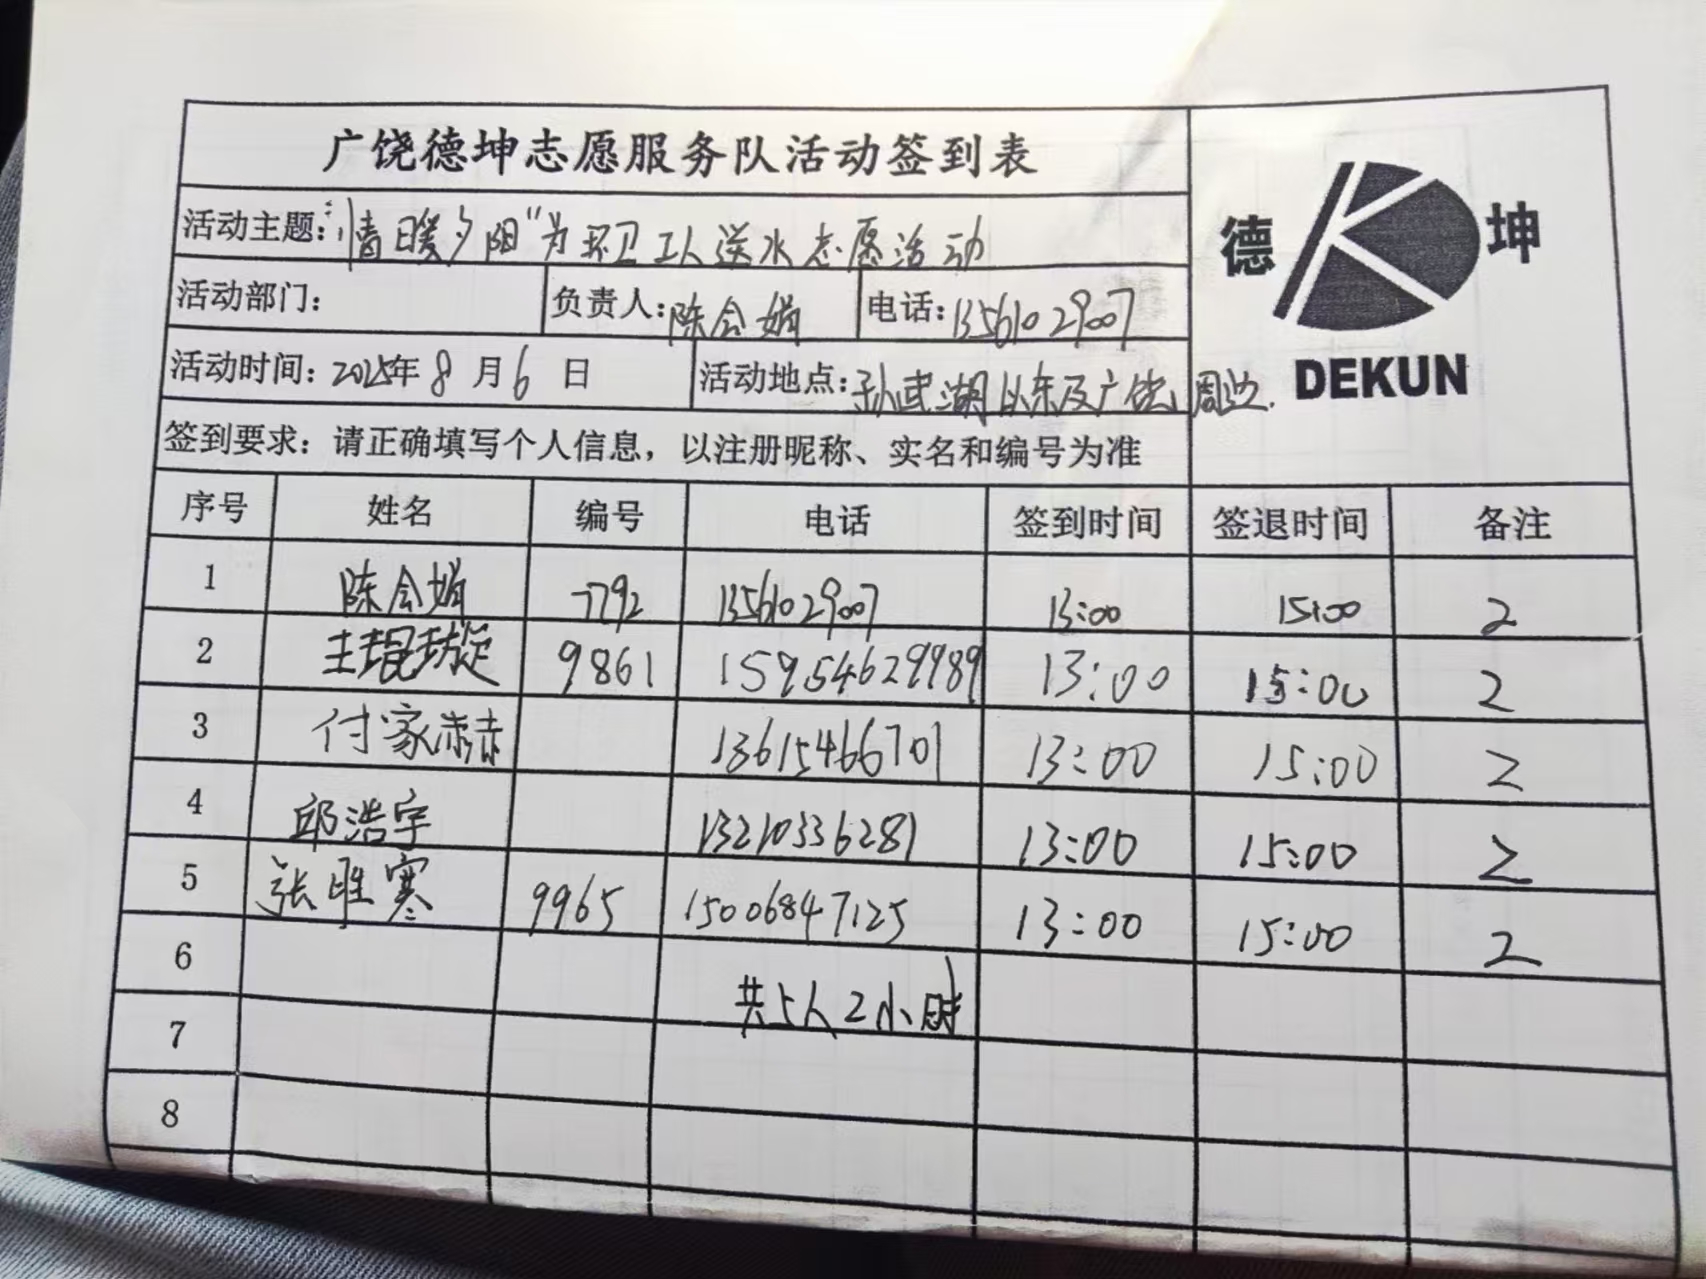 广饶德坤志愿服务队活动签到表
德 坤
DEKUN
活动主题:"情暖夕阳"为环卫工人送水志愿活动
活动部门: 负责人:陈会娟 电话:13561029007
活动时间:2025年8月6日 活动地点:孙武湖以东及广饶周边.
签到要求:请正确填写个人信息,以注册昵称、实名和编号为准
序号 姓名 编号 电话 签到时间 签退时间 备注
1 陈会娟 7792 13561029007 13:00 15:00 2
2 王琨璇 9861 15954629989 13:00 15:00 2
3 付家赫 13615466701 13:00 15:00 2
4 邱浩宇 13210336281 13:00 15:00 2
5 张胜寒 9965 15006847125 13:00 15:00 2
6
共5人2小时
7
8